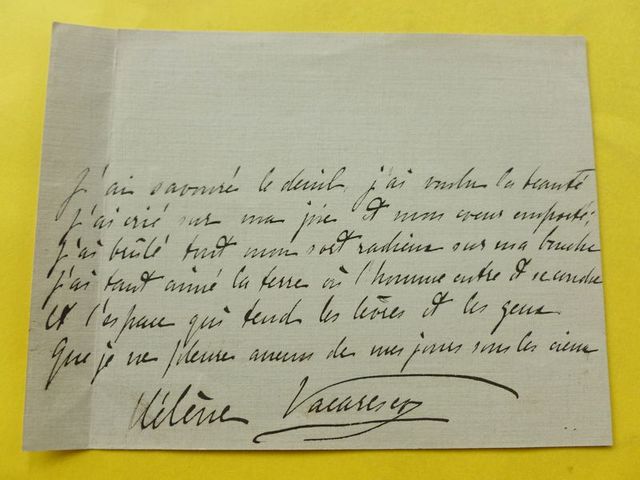 J'ai savouré le deuil, j'ai voulu la beauté
J'ai crié sur ma joie et mon cœur emporté;
J'ai brûlé tout mon sort radieux sur ma bouche
J'ai tant aimé la terre où l'homme entre et se couche
Et l'espace qui tend les lèvres et les yeux
Que je ne pleure aucun de mes jours sous les cieux
Hélène Vacaresco